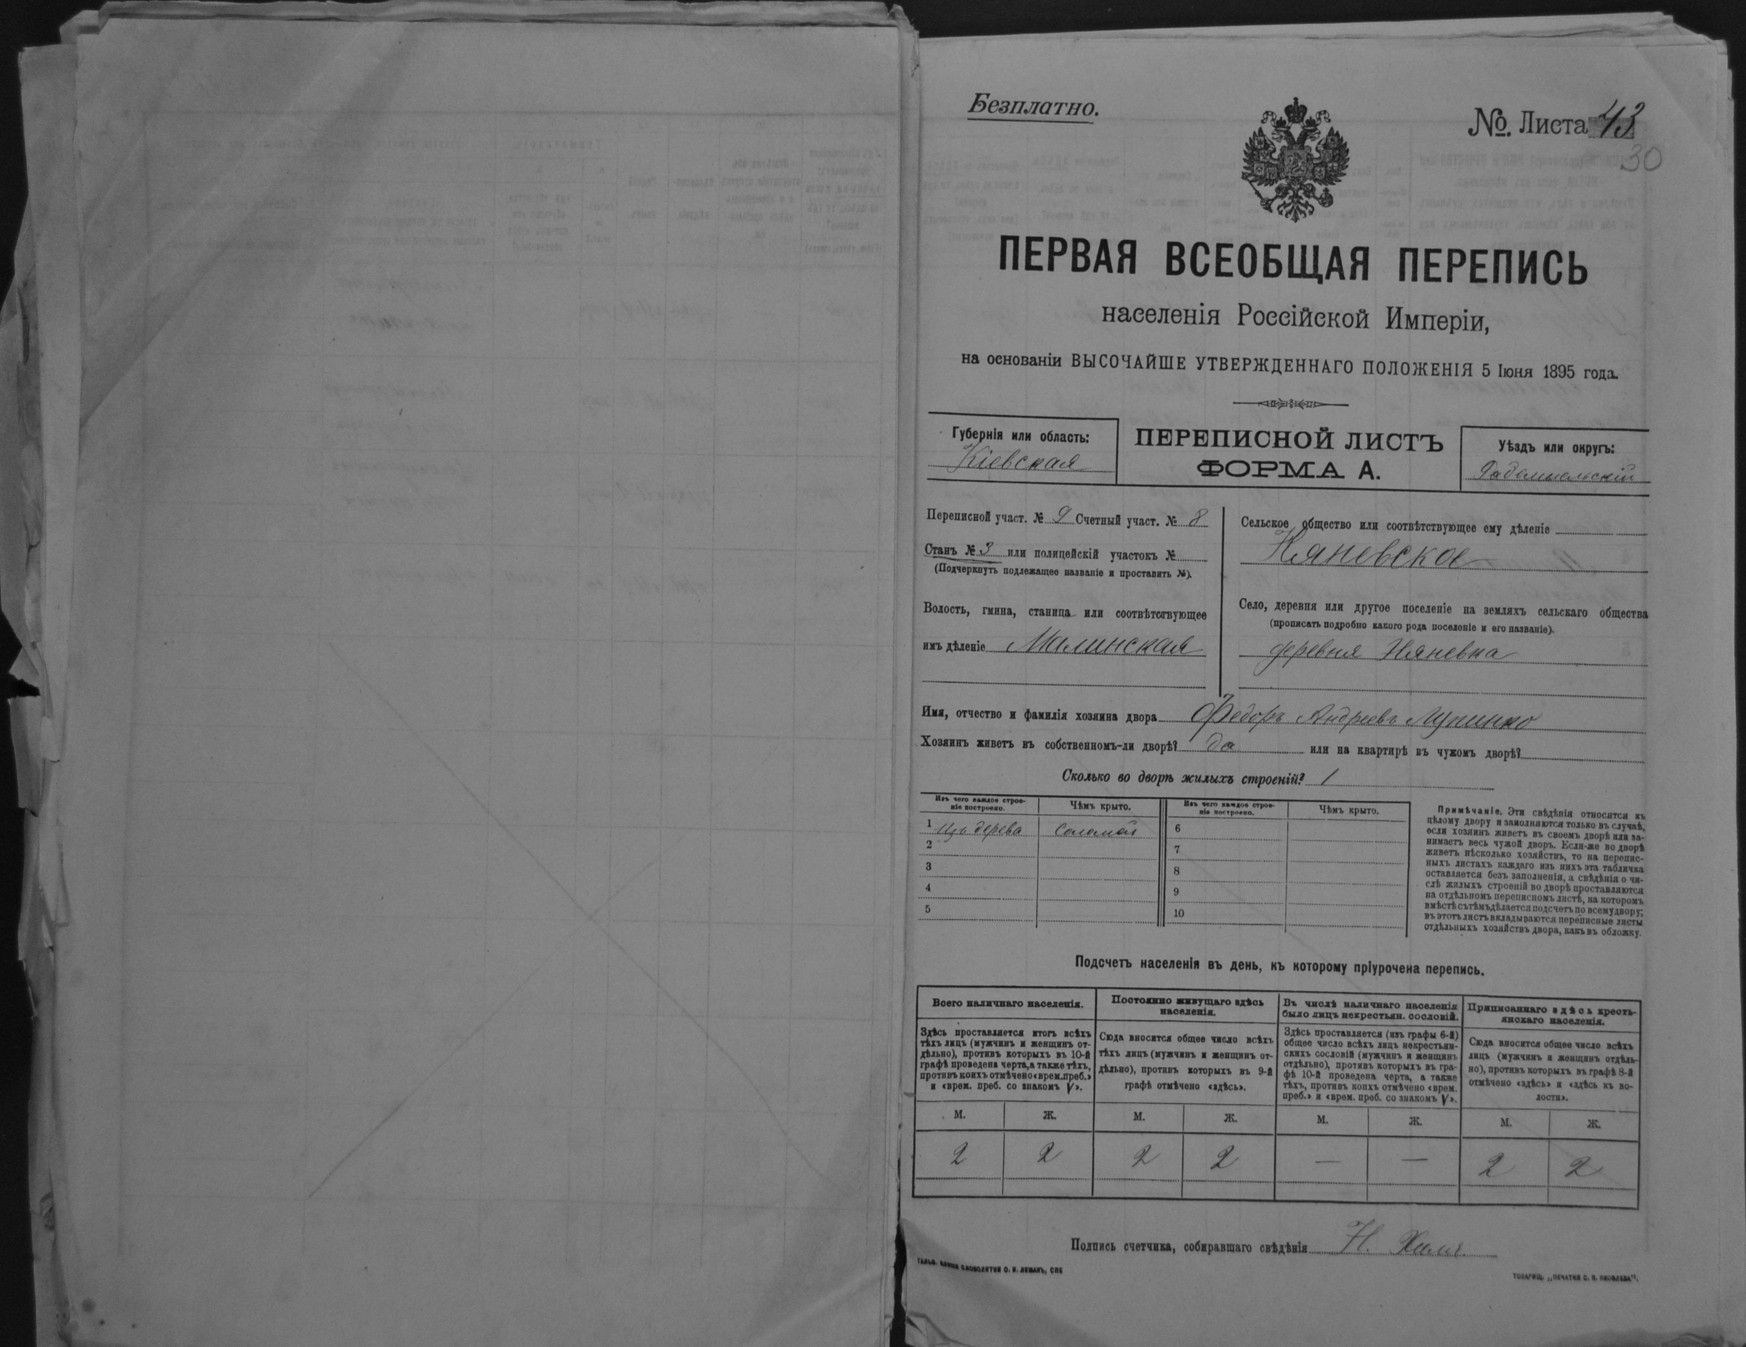 Безплатно.
№. Листа 43
30
ПЕРВАЯ ВСЕОБЩАЯ ПЕРЕПИСЬ
населенія Россійской Имперіи,
на основаніи ВЫСОЧАЙШЕ УТВЕРЖДЕННАГО ПОЛОЖЕНІЯ 5 Іюня 1895 года.
Губернія или область:
Кіевская
ПЕРЕПИСНОЙ ЛИСТЪ
ФОРМА А.
Уѣздъ или округъ:
Радомысльскій
Переписной участ. № 9 Счетный участ. № 8
Станъ № 3 или полицейскій участокъ №
(Подчеркнуть подлежащее названіе и проставить №).
Волость, гмина, станица или соотвѣтствующее
имъ дѣленіе Малинская
Сельское общество или соотвѣтствующее ему дѣленіе
Няневское
Село, деревня или другое поселеніе на земляхъ сельскаго общества
(прописать подробно какого рода поселеніе и его названіе).
деревня Няневка
Имя, отчество и фамилія хозяина двора Федоръ Андреевъ
Хозяинъ живетъ въ собственномъ-ли дворѣ? да или на квартирѣ въ чужомъ дворѣ?
Сколько во дворѣ жилыхъ строеній? 1
Изъ чего каждое строе-
ніе построено.
Чѣмъ крыто.
Изъ чего каждое строе-
ніе построено.
Чѣмъ крыто.
1 Изъ дерева Соломой 6
2 7
3 8
4 9
5 10
Примѣчаніе. Эти свѣдѣнія относятся къ
цѣлому двору и заполняются только въ случаѣ,
если хозяинъ живетъ въ своемъ дворѣ или за-
нимаетъ весь чужой дворъ. Если-же во дворѣ
живетъ нѣсколько хозяйствъ, то на перепис-
ныхъ листахъ каждаго изъ нихъ эта табличка
оставляется безъ заполненія, а свѣдѣнія о чи-
слѣ жилыхъ строеній во дворѣ проставляются
на отдѣльномъ переписномъ листѣ, на которомъ
вмѣстѣ съ тѣмъ дѣлается подсчетъ по всему двору;
въ этотъ листъ вкладываются переписные листы
отдѣльныхъ хозяйствъ двора, какъ въ обложку.
Подсчетъ населенія въ день, къ которому пріурочена перепись.
Всего наличнаго населенія.
Здѣсь проставляется итогъ всѣхъ
тѣхъ лицъ (мужчинъ и женщинъ от-
дѣльно), противъ которыхъ въ 10-й
графѣ проведена черта, а также тѣхъ,
противъ коихъ отмѣчено «врем. преб.»
и «врем. преб. со знакомъ V».
Постоянно живущаго здѣсь
населенія.
Сюда вносится общее число всѣхъ
тѣхъ лицъ (мужчинъ и женщинъ от-
дѣльно), противъ которыхъ въ 9-й
графѣ отмѣчено «здѣсь».
Въ числѣ наличнаго населенія
было лицъ некрестьян. сословій.
Здѣсь проставляется (изъ графы 6-й)
общее число всѣхъ лицъ некрестьян-
скихъ сословій (мужчинъ и женщинъ
отдѣльно), противъ которыхъ въ гра-
фѣ 10-й проведена черта, а также
тѣхъ, противъ коихъ отмѣчено «врем.
преб.» и «врем. преб. со знакомъ V».
Приписаннаго здѣсь кресть-
янскаго населенія.
Сюда вносится общее число всѣхъ
лицъ (мужчинъ и женщинъ отдѣль-
но), противъ которыхъ въ графѣ 8-й
отмѣчено «здѣсь» и «здѣсь въ во-
лости».
М. Ж. М. Ж. М. Ж. М. Ж.
2 2 2 2 — — 2 2
Подпись счетчика, собиравшаго свѣдѣнія Н.
ТОВАРИЩ. „ПЕЧАТНЯ С. П. ЯКОВЛЕВА".